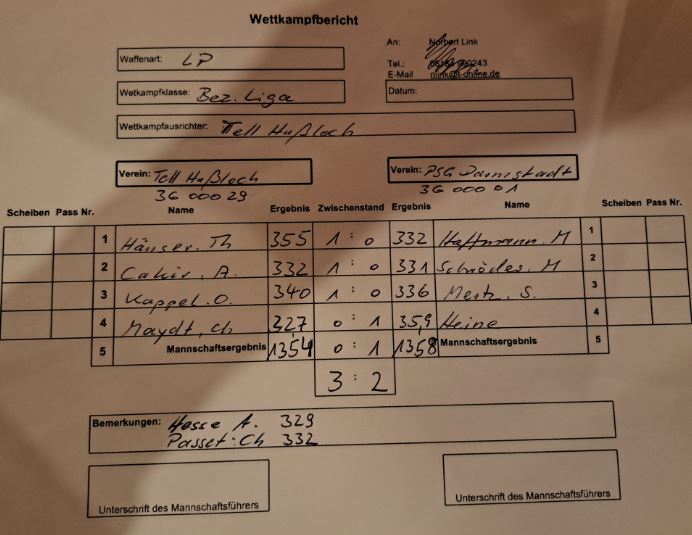 Wettkampfbericht
Waffenart: LP
An: Norbert Link
Tel.:
E-Mail nlink@t-online.de
Wetkampfklasse: Bez. Liga
Datum:
Wettkampfausrichter: Tell Haßloch
Verein: Tell Haßloch
Verein: PSG Darmstadt
36 000 29
36 000 01
Scheiben Pass Nr. Name Ergebnis Zwischenstand Ergebnis Name Scheiben Pass Nr.
1 Häuser. Th 355 1 : 0 332 Hoffmann. M 1
2 Cakir. A. 332 1 : 0 331 Schröder. M 2
3 Kappel. O. 340 1 : 0 336 Mertz. S. 3
4 Maydt, Ch 327 0 : 1 359 Heine 4
5 Mannschaftsergebnis 1354 0 : 1 1358 Mannschaftsergebnis 5
3 : 2
Bemerkungen: Hesse A. 329
Passet: Ch 332
Unterschrift des Mannschaftsführers
Unterschrift des Mannschaftsführers